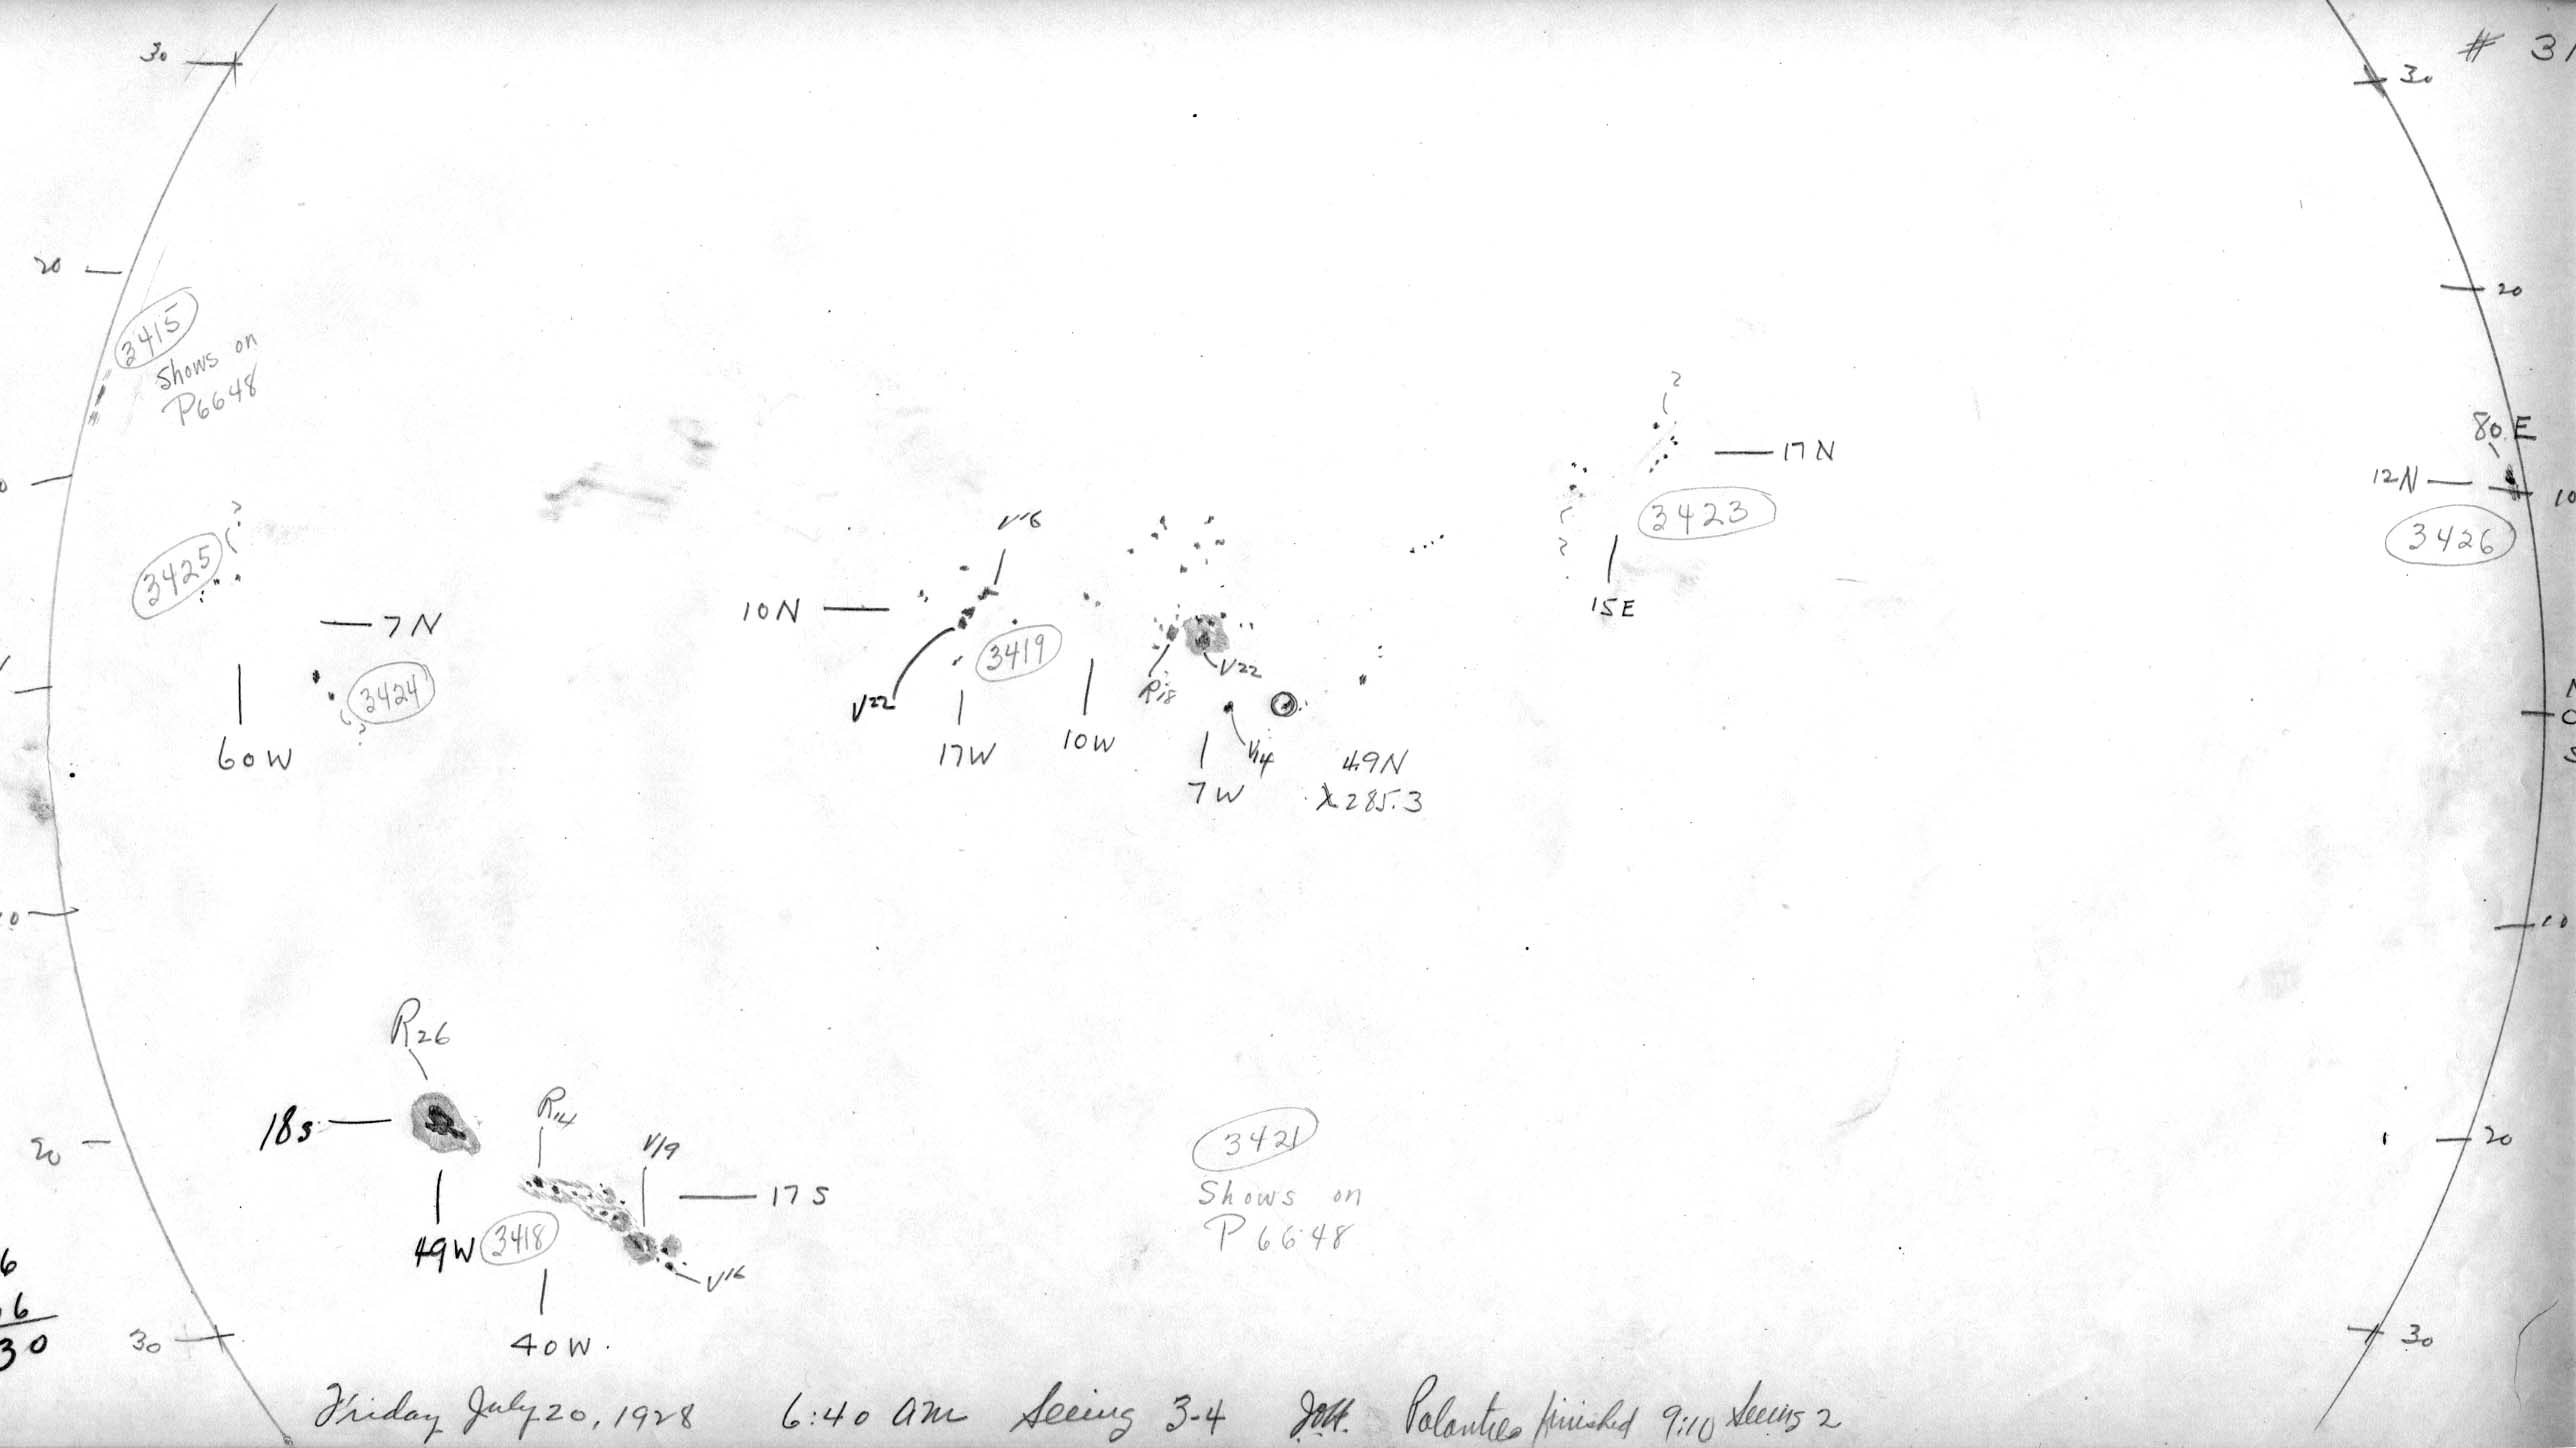 30
# 31
30
20
20
3415
Shows on
P6648
2
80 E
17N
12N
10
3423
3426
V16
3425
15E
7N
10N
3419
3424
R18
V22
V22
60W
17W
10W
V14
7W
4.9N
285.3
N
0
S
10
R26
R14
18S
V19
3421
Shows on
P6648
20
20
17S
49W
3418
V16
6
6
30
30
40W.
30
Friday July 20, 1928 6:40 am Seeing 3-4 Polarities finished 9:10 Seeing 2